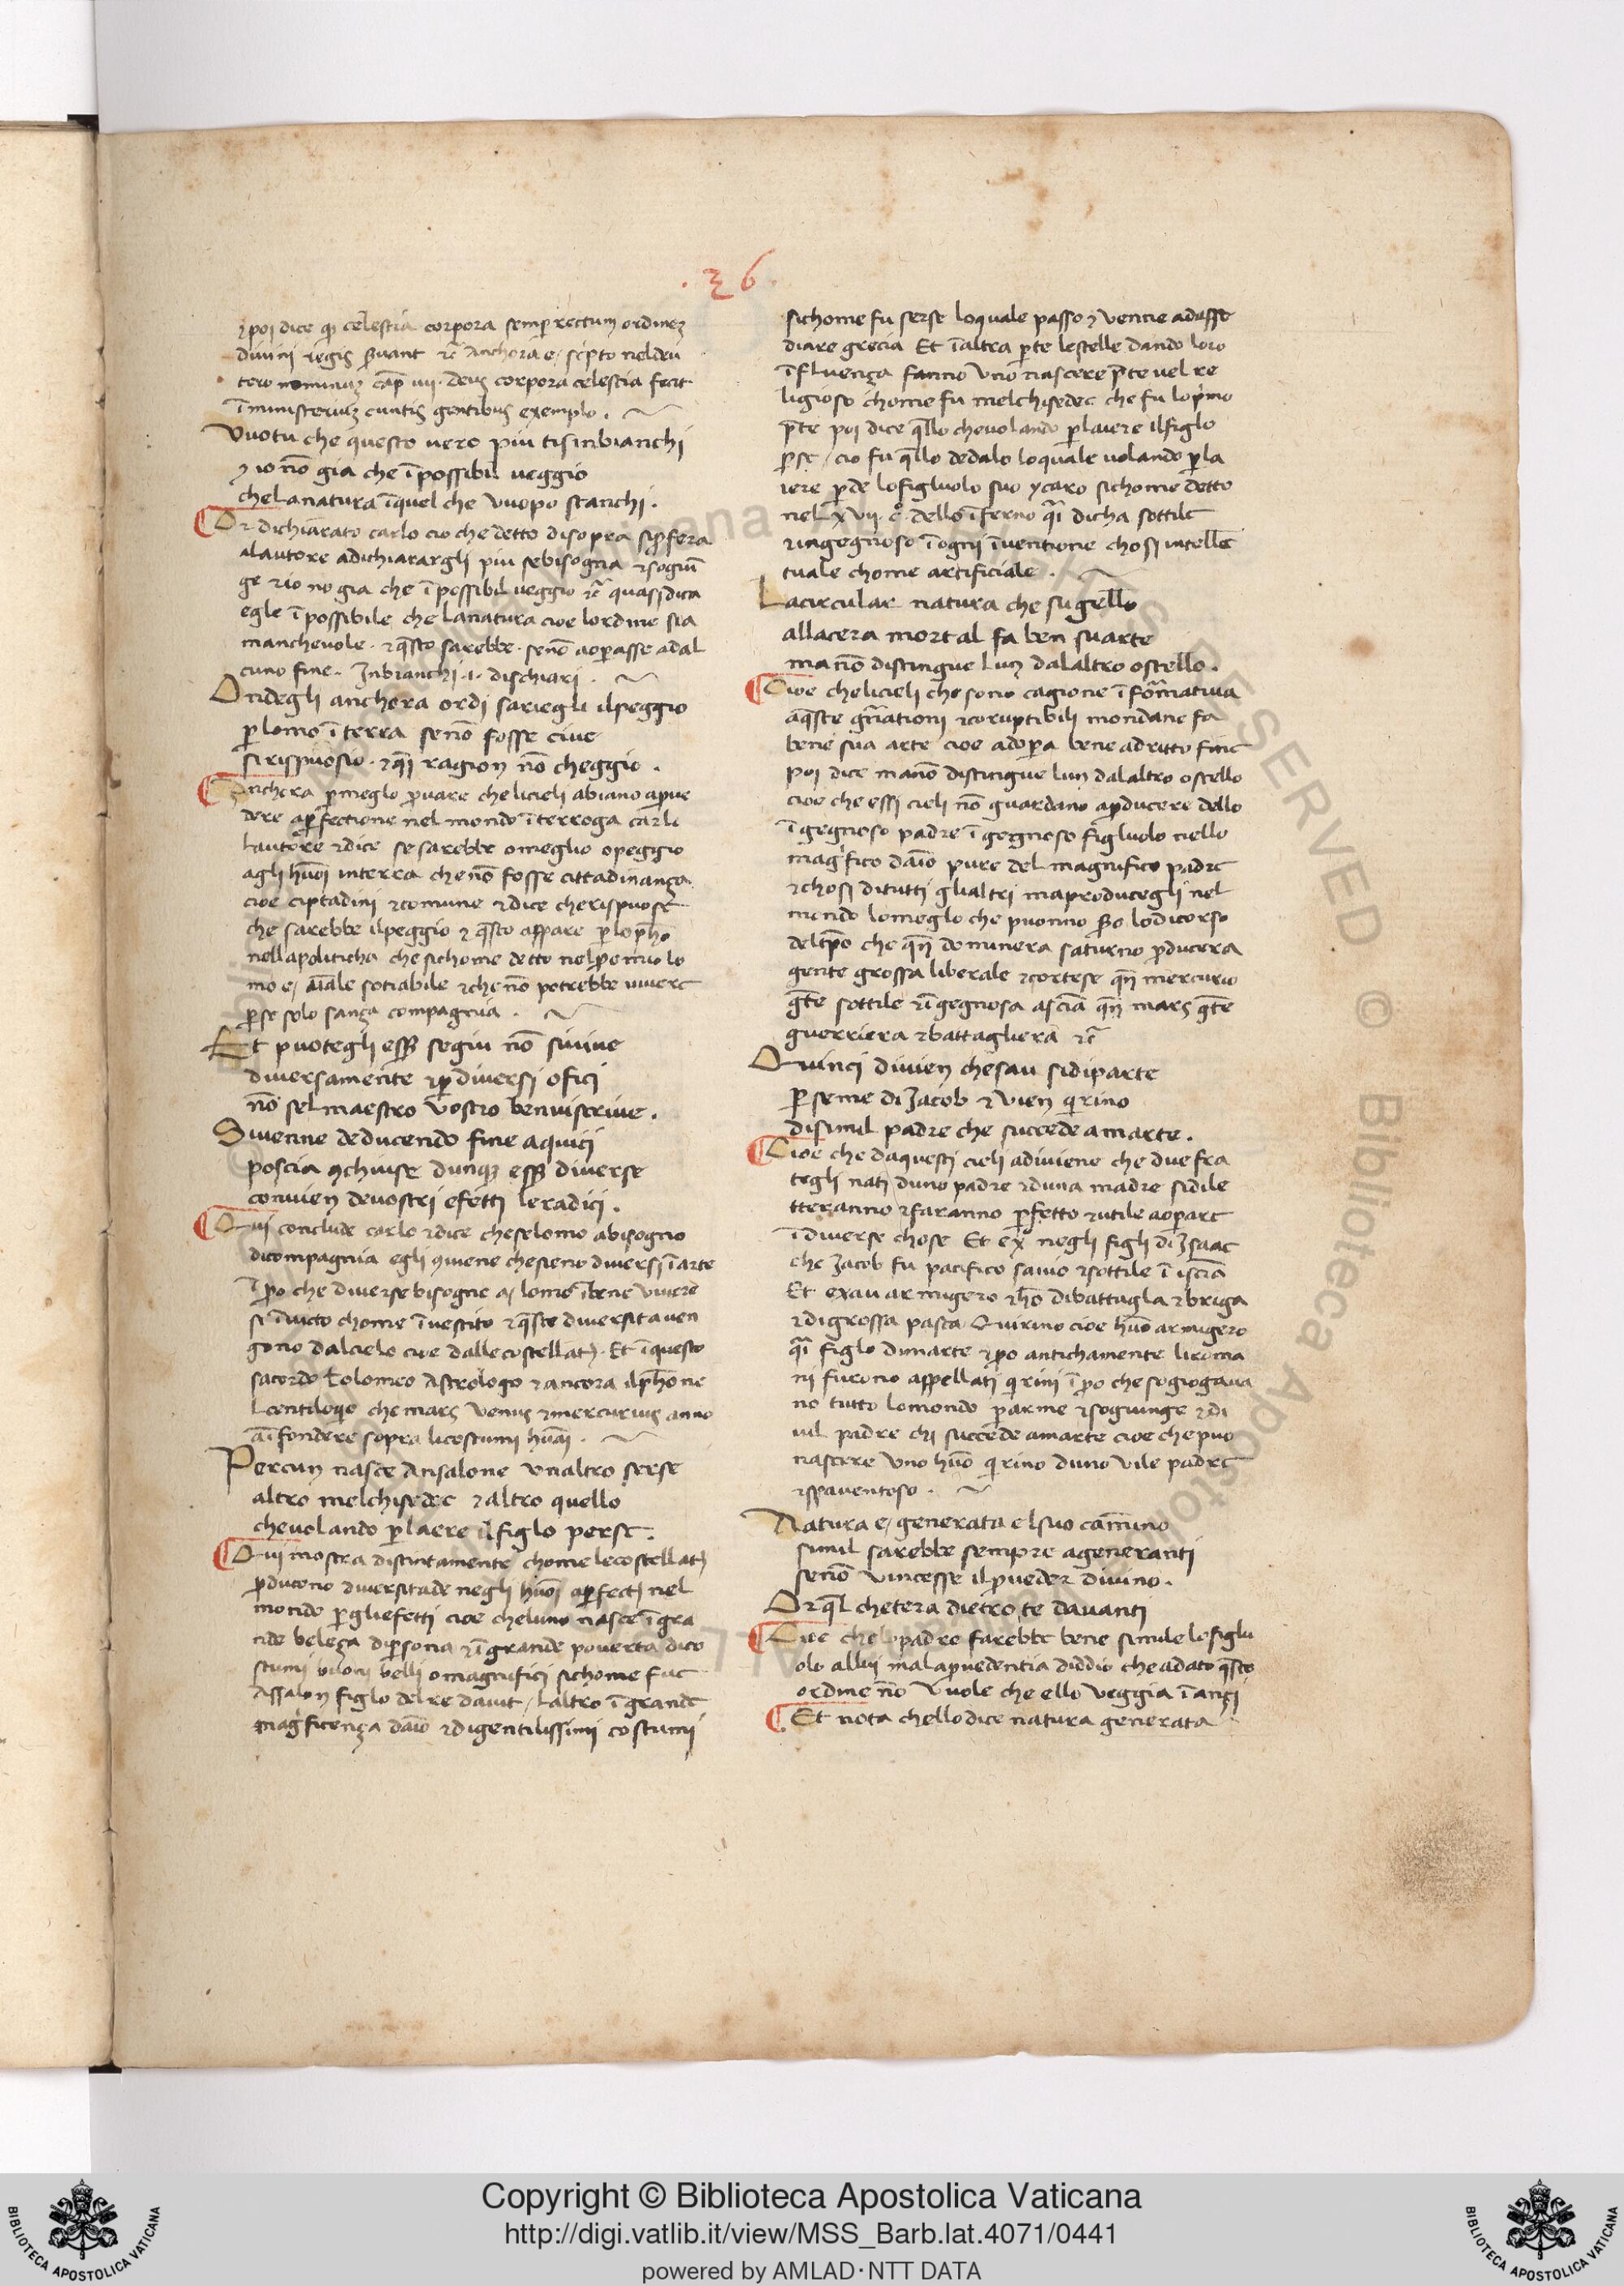 .36.
⁊poi dice qͥ celestia corpora semp̱ rectum ordinez
diuini regis ẜuant ⁊c̃ Anchora e/ scipto nel deu
tero nominuz cap̃ iiij. deus corpora celestia fecit
ĩministeriuz cuntis gentibus exemplo.
Vuotu che questo uero piu tisinbianchi
⁊ io nõ gia che ĩpossibil ueggio
che la natura ĩquel che vuopo stanchi.
Or dichiarato carlo cio che detto disopra sip̱fera
alautore adichiarargli piu sebisogna ⁊sogiũ
ge ⁊io no gia che ĩpossibil ueggio ⁊c̃ quasi dica
egle ĩpossibile che la natura cioe lordine sia
mancheuole. ⁊q̃sto sarebbe. senõ aop̱asse adal
cuno fine. Inbianchi .i. dischiari.
Ondegli anchora or di sariegli ilpeggio
p̱ lomo ĩ terra senõ fosse ciue
si rispuosio. ⁊qͥ ragion nõ cheggio.
Anchora p̱meglo prouare che licieli abiano aprue
dere ap̱fectione nel mondo ĩterroga carlo
lautore ⁊dice se sarebbe o meglio o peggio
agli huõi interra che nõ fosse cittadinança
cioe ciptadini ⁊comune ⁊dice cherispuose
che sarebbe ilpeggio ⁊ q̃sto appare p̱ lo pho
nella politicha che sichome detto nel premio lo
mo e/ aĩale sotiabile ⁊che nõ potrebbe uiuere
p̱se solo sança compagnia.
Et puotegli eẜẜ segiu nõ siuiue
diuersamente ⁊p̱ diuersi ofici
nõ sel maestro vostro ben uiscriue.
Siuenne deducendo fine aquici
poscia ꝯchiuse dunqꝫ eẜẜ diuerse
conuien deuostri efetti leradici.
Qui conclude carlo ⁊dice che selomo abisogno
dicompagnia egli ꝯuiene che sieno diuersi ĩ arte
ĩ p̱o che diuerse bisogne a/ lomo ĩbene viuere
si ĩuicto chome ĩuestito ⁊q̃ste diuersita uen
gono dalcielo cioe dalle costellatj. Et ĩ questo
sacorda tolomeo Astrologo ⁊ancora ilpho ne
lcentiloqio che mars venus ⁊mercurius anno
aĩfondere sopra licostumi huãi.
Per cun nasce Ansalone vnaltro serse
altro melchisedec ⁊altro quello
che uolando p̱ laere il figlo perse.
Qui mostra distintamente chome lecostellatj
p̱ducono diuersitade negli huõi ap̱fectj nel
mondo p̱ gliefetti cioe cheluno nasce ĩ gra
nde beleça dip̱sona ⁊ĩ grande pouerta dico
stumi buoni belli o magnifici sichome fue
Assalon figlo del re dauit/ laltro ĩ grande
magͥficença daĩo ⁊digentilissimi costumi
sichome fu serse loquale passo ⁊ venne adasse
diare grecia Et ĩaltra p̱te lestelle dando loro
ĩfluença fanno vno nascere p̃te uel re
ligioso chome fu melchisedec che fu lop̃mo
p̃te poi dice q̃llo cheuolando p̱ laiere ilfiglo
p̱se/ cio fu q̃llo dedalo loquale uolando p̱ la
iere p̱de lo figluolo suo ycaro sichome detto
nel xvij. cͦ. dello ĩferno qͣi dicha sottile
⁊ingegnoso ĩ ogni ĩuentione chosi intelle
tuale chome artificiale.
La circular natura che sugello
alla cera mortal fa ben suarte
ma nõ distingue lun dal altro ostello.
Cioe che licieli che sono cagione ĩ formatiua
aq̃ste gñationi ⁊coruptibili mondane fa
bene sua arte cioe adop̱a bene adritto fine
poi dice ma nõ distingue lun dalaltro ostello
cioe che essi cieli nõ guardano ap̱ducere dello
ĩgegnoso padre ĩgegnoso figluolo nello
magͥfico daĩo pure del magnifico padre
⁊chosi ditutti glialtri ma producegli nel
mondo lo meglo che puonno ẜo lo dicorso
del tp̃o che qñ dominera saturno p̱ducera
gente grossa liberale ⁊cortese qñ mercurio
gẽte sottile ⁊ĩgegnosa a sciẽa qñ mars gẽte
guerriera ⁊battagliera ⁊c̃
Quinci diuien chesau sidiparte
p̱ seme di Jacob ⁊ vien qirino
disimil padre che succede a marte.
Cioe che daquesti cieli adiuiene che due fra
tegli natj duno padre ⁊duna madre sidile
tteranno ⁊saranno p̱fetto ⁊utile aop̱are
ĩ diuerse chose Et ex̃ negli figli di Isaac
che Jacob fu pacifico sauio ⁊sottile ĩ isciẽa
Et exau armigero ⁊hõ dibattagla ⁊briga
⁊digrossa pasta. Quirino cioe huõ armigero
qͣi figlo dimarte ⁊p̱o antichamente liroma
ni furono appellati qirini ĩ p̱o che sogiogaua
no tutto lomondo p̱ arme ⁊sogiunge ⁊di
uil padre chi succede amarte cioe che puo
nascere vno huõ qirino duno vile padre
⁊spauentoso.
Natura e/ generata elsuo camino
simil sarebbe sempre ageneranti
senõ vincesse il p̱ueder diuino.
Or q̃l chetera dietro te dauanti
Cioe che lo padre farebbe bene simile lofiglu
olo allui ma la p̱uedentia diddio che adato q̃sto
ordine nõ vuole che ello veggia ĩançi
Et nota chello dice natura generata
Copyright © Biblioteca Apostolica Vaticana
http://digi.vatlib.it/view/MSS_Barb.lat.4071/0441
powered by AMLAD·NTT DATA
BIBLIOTECA APOSTOLICA VATICANA
BIBLIOTECA APOSTOLICA VATICANA